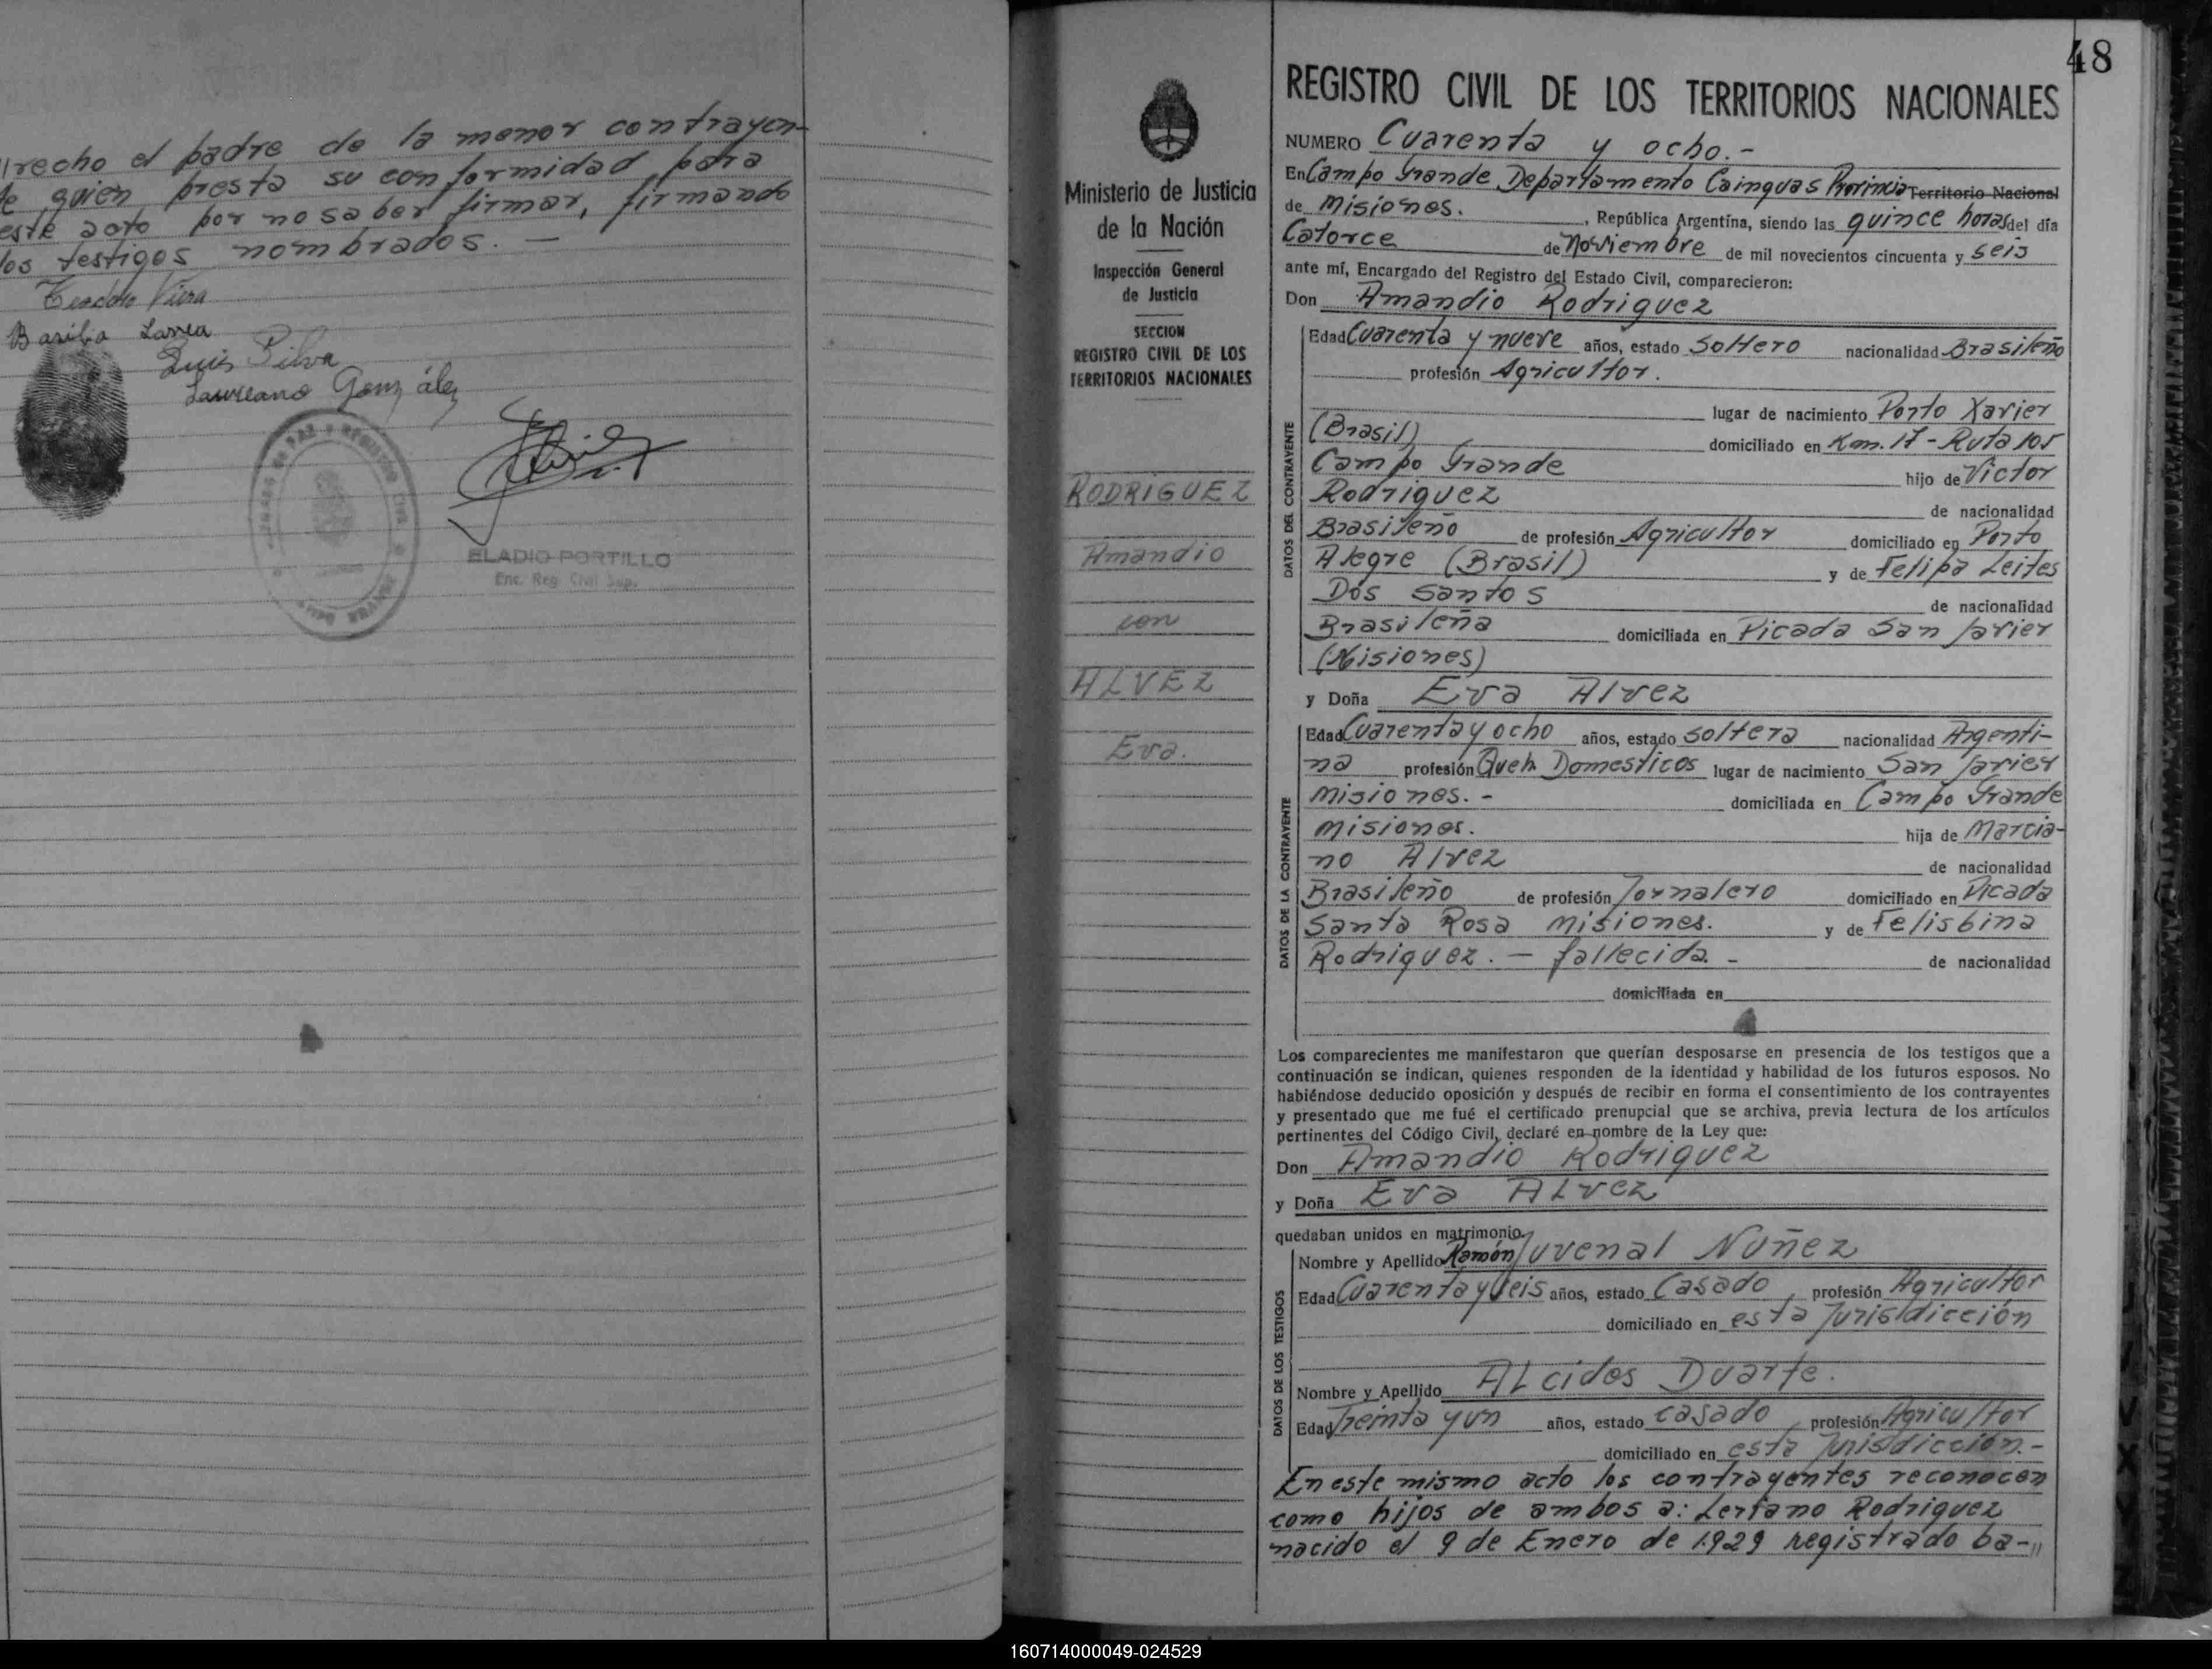 recho el padre de la menor contrayen-
te quien presta su conformidad para
este acto por no saber firmar, firmando
los testigos nombrados. —
Teodoro Viera
Basilia Larrea
Luis Silva
Laureano González
ELADIO PORTILLO
Enc. Reg. Civil Sup.
48
Ministerio de Justicia
de la Nación
Inspección General
de Justicia
SECCION
REGISTRO CIVIL DE LOS
TERRITORIOS NACIONALES
RODRIGUEZ
Amandio
con
ALVEZ
Eva.
REGISTRO CIVIL DE LOS TERRITORIOS NACIONALES
NUMERO Cuarenta y ocho.-
En Campo Grande Departamento Cainguas Provincia Territorio Nacional
de Misiones. , República Argentina, siendo las quince horas del día
Catorce de Noviembre de mil novecientos cincuenta y seis
ante mí, Encargado del Registro del Estado Civil, comparecieron:
Don Amandio Rodriguez
DATOS DEL CONTRAYENTE
Edad Cuarenta y nueve años, estado Soltero nacionalidad Brasileño
profesión Agricultor.
lugar de nacimiento Porto Xavier
(Brasil) domiciliado en Km. 17 - Ruta 105
Campo Grande hijo de Victor
Rodriguez de nacionalidad
Brasileño de profesión Agricultor domiciliado en Porto
Alegre (Brasil) y de Felipa Leites
Dos Santos de nacionalidad
Brasileña domiciliada en Picada San Javier
(Misiones)
y Doña Eva Alvez
DATOS DE LA CONTRAYENTE
Edad Cuarenta y ocho años, estado soltera nacionalidad Argenti-
na profesión Queh. Domesticos lugar de nacimiento San Javier
Misiones.- domiciliada en Campo Grande
Misiones. hija de Marcia-
no Alvez de nacionalidad
Brasileño de profesión Jornalero domiciliado en Picada
Santa Rosa Misiones. y de Felisbina
Rodriguez. — fallecida.- de nacionalidad
domiciliada en
Los comparecientes me manifestaron que querían desposarse en presencia de los testigos que a
continuación se indican, quienes responden de la identidad y habilidad de los futuros esposos. No
habiéndose deducido oposición y después de recibir en forma el consentimiento de los contrayentes
y presentado que me fué el certificado prenupcial que se archiva, previa lectura de los artículos
pertinentes del Código Civil, declaré en nombre de la Ley que:
Don Amandio Rodriguez
y Doña Eva Alvez
quedaban unidos en matrimonio.
DATOS DE LOS TESTIGOS
Nombre y Apellido Ramón Juvenal Nuñez
Edad Cuarenta y seis años, estado Casado , profesión Agricultor
domiciliado en esta Jurisldicción
Nombre y Apellido ALcides Duarte.
Edad Treinta y un años, estado casado , profesión Agricultor
domiciliado en esta Jurisdicción.-
En este mismo acto los contrayentes reconocen
como hijos de ambos a: Lertano Rodriguez
nacido el 9 de Enero de 1.929 registrado ba-//
160714000049-024529